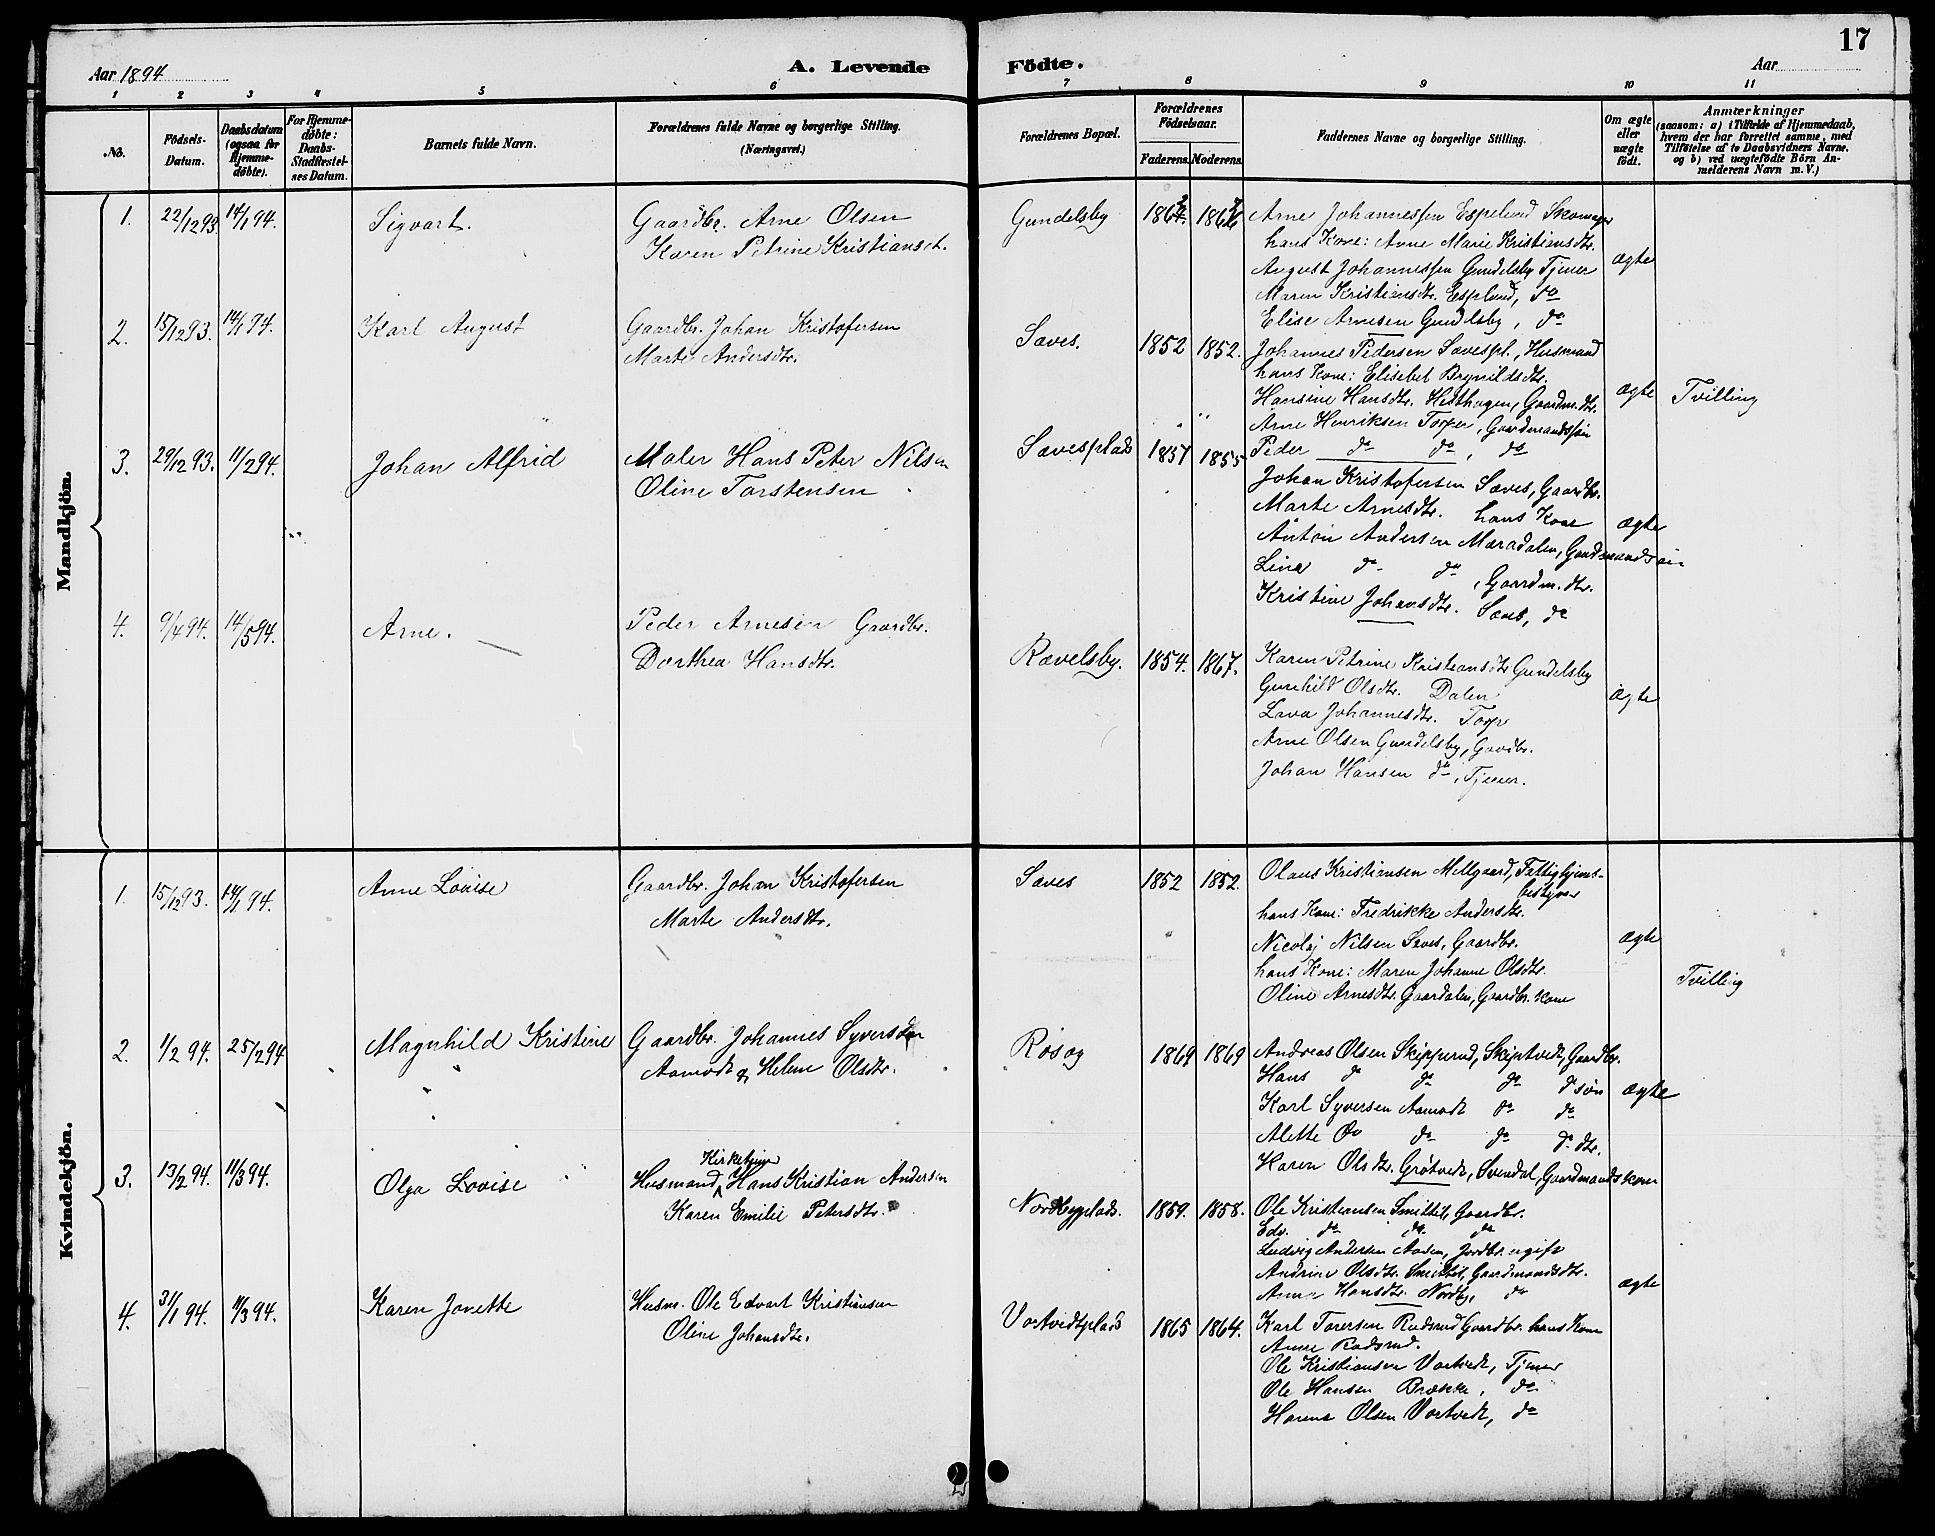 17
Aar 1894
A. Levende
Födte.
Aar
1 2 3 4 5 6 7 8 9 10 11
No.
Födsels-Datum.
Daabsdatum (ogsaa for Hjemmedöbte).
For Hjemmedøbte: Daabs-Stadfæstelses Datum.
Barnets fulde Navn.
Forældrenes fulde Navne og borgerlige Stilling.
(Næringsvei.)
Forældrenes Bopæl.
Forældrenes Födselsaar.
Faderens. Moderens.
Faddernes Navne og borgerlige Stilling.
Om ægte eller uægte födt.
Anmærkninger
(saasom: a) i Tilfælde af Hjemmedaab,
hvem der har forrettet samme, med
Tilföielse af to Daabsvidners Navne.
og b) ved uægtefödte Börn An-
melderens Navn m. V.)
Mandkjön.
1. 22/12 93. 14/1 94. Sigvart. Gaardbr. Arne Olsen
Karen Petrine Kristiansdt.
Gundelsby
Arne Johannessen Espelund Skomager
hans Kone: Anne Marie Kristiansdtr.
August Johannessen Gundelsby Tjener
Maren Kristiansdtr. Esplund, do
Elise Arnesen Gundelsby, do
ægte
2. 15/12 93. 14/1 94. Karl August Gaardbr. Johan Kristofersen
Marte Andersdtr.
Sæves. 1852 1852.
Johannes Pedersen Sævespl., Husmand
hans Kone: Elisebet Brynildsdtr.
Hansine Hansdtr. Hesthagen, Gaardm. dtr.
Arne Henriksen Torper, Gaardmandssøn
Peder do do, do
ægte Tvilling
3. 29/12 93. 11/2 94. Johan Alfrid Maler Hans Peter Nilsen
Oline Torstensen
Sævesplads 1857 1855
Johan Kristofersen Sæves, Gaardbr.
Marte Arnesdtr. hans Kone
Anton Andersen Mæradalen, Gaardmandssøn
Lina do do, Gaardm. dtr.
Kristine Johansdtr. Sæves, do
ægte
4. 9/4 94. 14/5 94. Arne. Peder Arnesen Gaardbr.
Dorthea Hansdtr.
Rævelsby. 1854. 1867.
Karen Petrine Kristiansdtr Gundelsby
Gunhild Olsdtr. Dalen
Lava Johannesdtr. Torp
Arne Olsen Gundelsby, Gaardbr.
Johan Hansen do, Tjener.
ægte
Kvindekjön.
1. 15/12 93. 14/1 94. Anne Lovise Gaardbr. Johan Kristofersen
Marte Andersdtr.
Sæves 1852 1852.
Olaus Kristiansen Mellgaard, Fattighjems-
bestyrer
hans Kone: Fredrikke Andersdtr.
Nicolaj Nilsen Sæves, Gaardbr.
hans Kone: Maren Johanne Olsdtr.
Oline Arnesdtr. Gaardalen, Gaardbr. kone
ægte Tvilling
2. 1/2 94. 25/2 94 Magnhild Kristine Gaardbr. Johannes Syversen
Aamodt og Helene Olsdtr.
Røsæg 1869 1869
Andreas Olsen Skipperud, Skiptvedt, Gaardbr.
Hans do do do do søn
Karl Syversen Aamodt do do
Alette do do do do dtr.
Karen Olsdtr. Grøtvedt, Svendal, Gaardmandskone
ægte
3. 13/2 94. 11/3 94. Olga Lovise Husmand, Kirketjener Hans Kristian Andersen
Karen Emilie Petersdtr.
Nordbyplads. 1859. 1858.
Ole Kristiansen Smittil, Gaardbr.
Edv. do do do
Ludvig Andersen Aasen, Jordbr. ugift
Andrine Olsdtr. Smittil, Gaardmandsdtr.
Anna Hansdtr. Nordby, do
ægte
4. 31/1 94. 11/3 94. Karen Jonette Husm. Ole Edvart Kristiansen
Oline Johansdtr.
Vortvedtplads 1865 1864.
Karl Torersen Rudsrud Gaardbr. hans Kone
Anne Rudsrud.
Ole Kristiansen Vortvedt, Tjener
Ole Hansen Brække, do
Harene Olsen Vortvedt, do